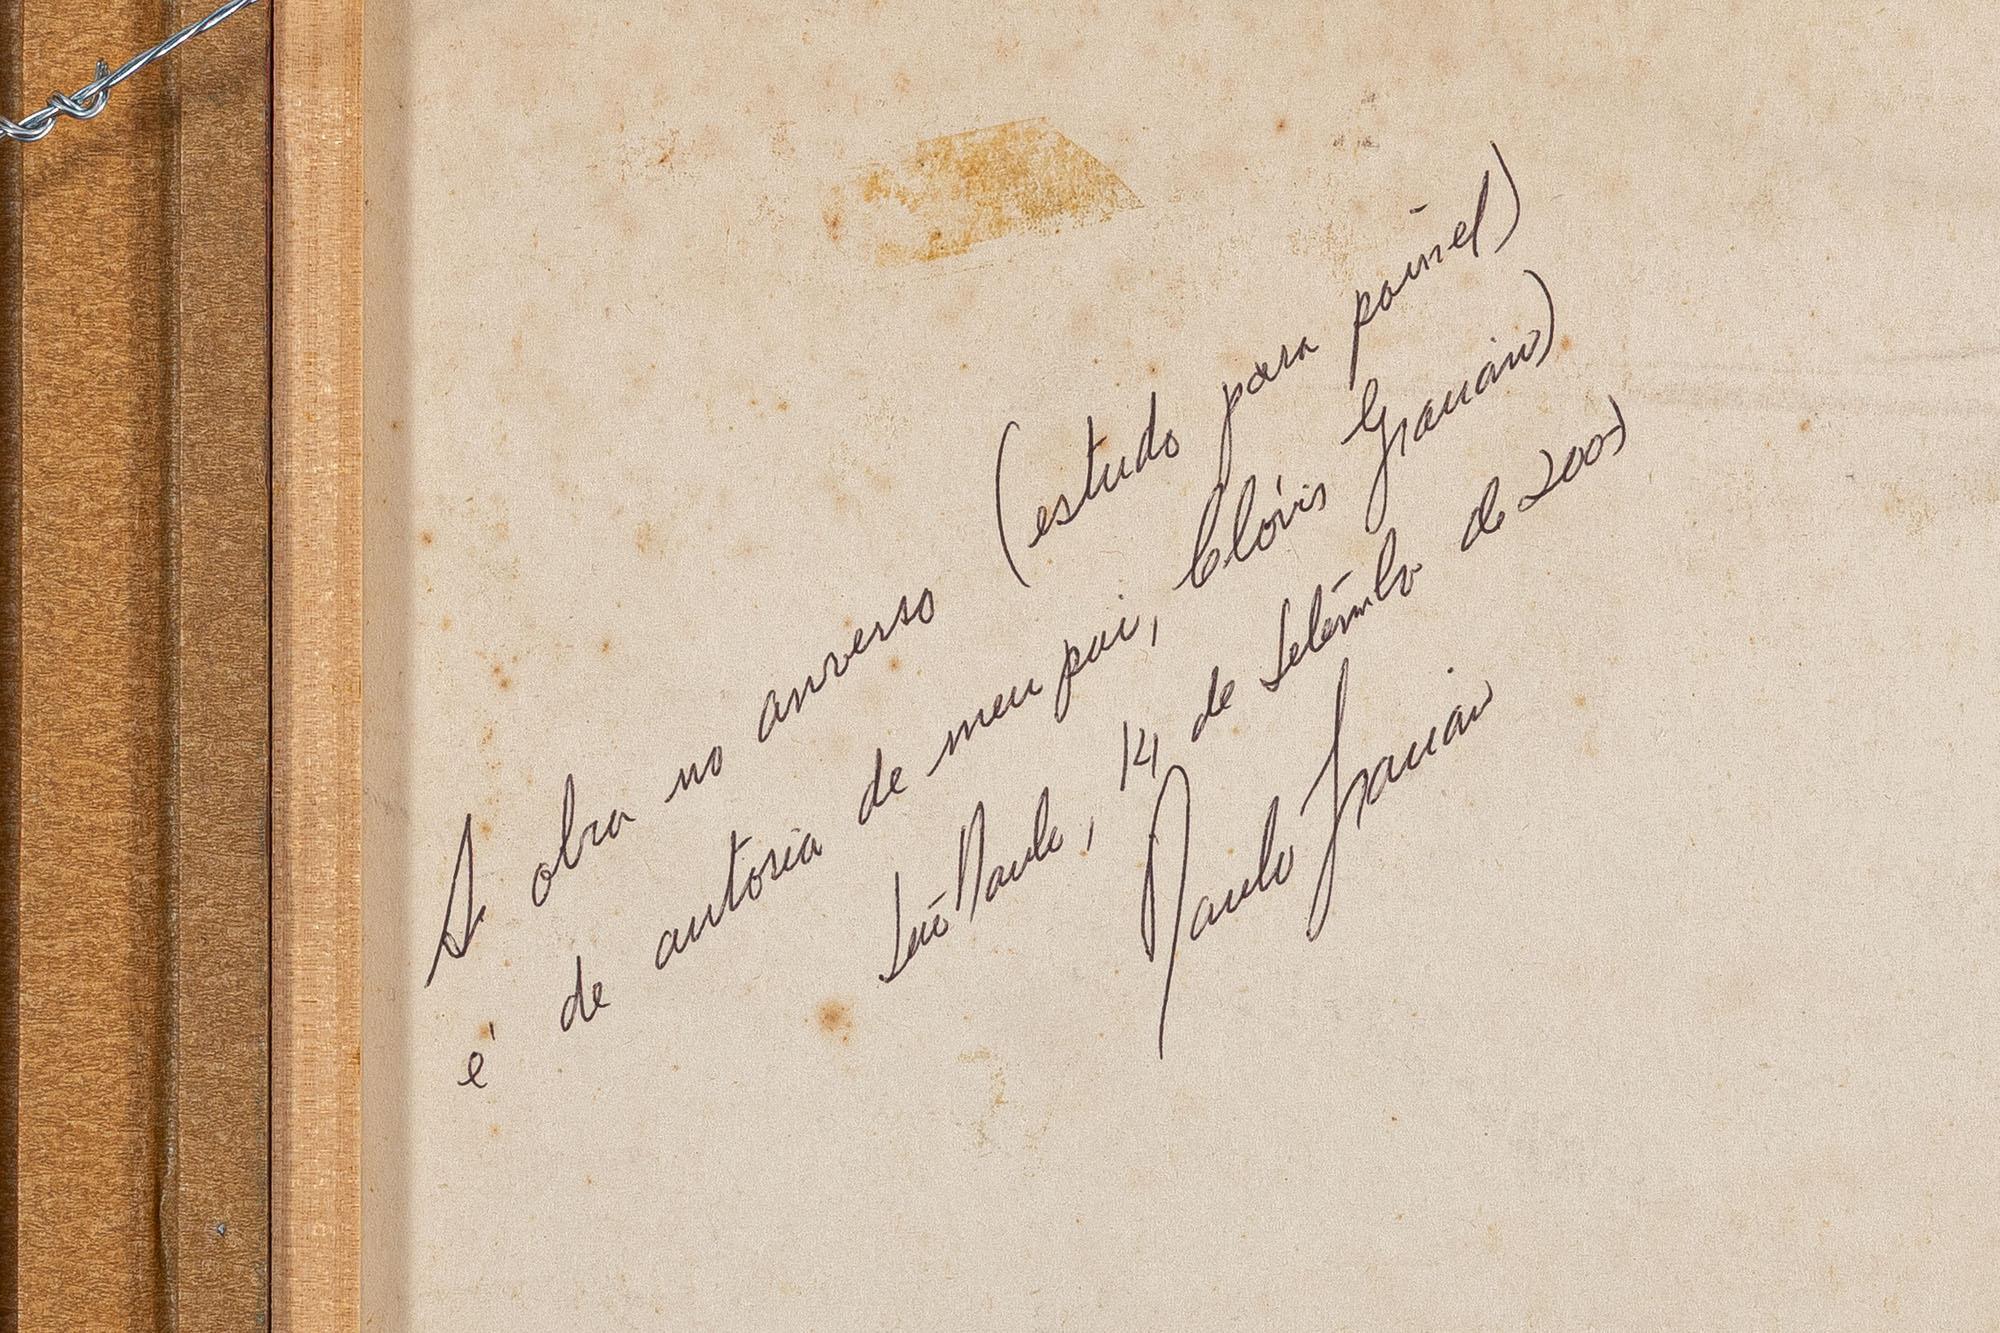 A obra no anverso (estudo para painel)
é de autoria de meu pai, Clóvis Graciano)
São Paulo, 14 de Setembro de
Paulo Graciano